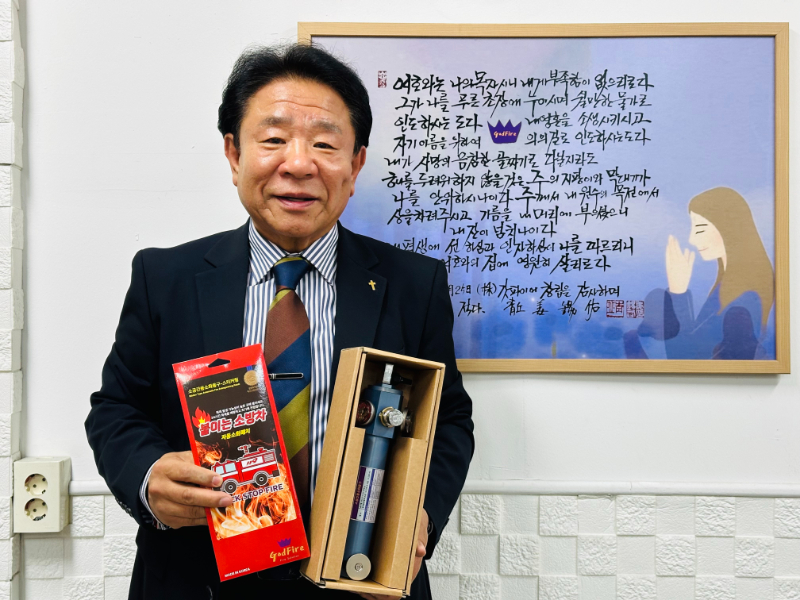 여호와는 나의 목자시니 내게 부족함이 없으리로다
그가 나를 푸른 초장에 누이시며 쉴만한 물가로
인도하시는도다 내 영혼을 소생시키시고
GodFire
자기 이름을 위하여 의의 길로 인도하시는도다
내가 사망의 음침한 골짜기로 다닐지라도
해를 두려워하지 않을것은 주의 지팡이와 막대기가
나를 안위하시나이다 주께서 내 원수의 목전에서
상을 차려주시고 기름을 내 머리에 부으셨으니
내 잔이 넘치나이다
평생에 선하심과 인자하심이 나를 따르리니
집에 영원히 살리로다
소공간용소화용구-소화커텔
붙이는 소방차
자동소화패치
STOP FIRE
GodFire
MADE IN KOREA